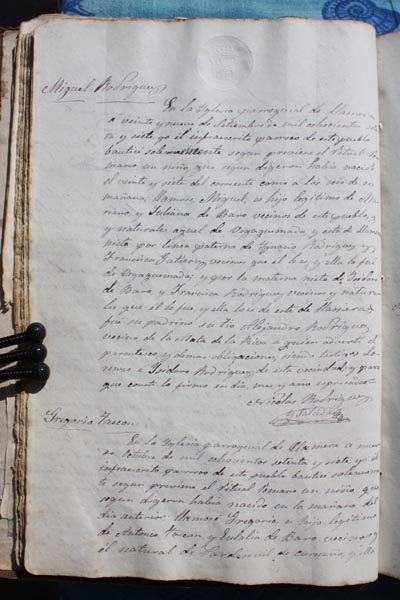 Miguel Rodriguez
En la Yglesia parroquial de Llamera
a veinte y nueve de Setiembre de mil ochocientos
ta y siete yo el infrascrito parroco de este pueblo
bauticé solemnemente segun previene el Ritual Ro-
mano un niño que segun digeron habia nacido
el veinte y siete del corriente como a las seis de su
mañana, llamose Miguel, es hijo legitimo de Ma-
riano y Juliana de Baro vecinos de este pueblo,
y naturales aquel de Vegaquemada y esta de Llamera
nieto por linea paterna de Ygnacio Rodriguez y
Francisca vecinos que el lo es, y ella lo fué
de Vegaquemada; y por la materna nieto de Isidoro
de Baro y Francisca Rodriguez, vecinos y natural
la que él lo fue, y ella lo es de este de Llamera:
fué su padrino su tio Alejandro Rodriguez
vecino de la Mata de la Riva a quien advertí el
parentesco y demas obligaciones, siendo testigos
é Isidoro Rodriguez de esta vecindad, y para
que conste lo firmo en dia, mes, y año espresados
Nicolás Rodriguez
Gregorio Tascon
En la Yglesia parroquial de Llamera a nueve
de Octubre de mil ochocientos setenta y siete yo el
infrascrito parroco de este pueblo bauticé solemnemen-
te segun previene el Ritual Romano un niño, que
segun digeron habia nacido en la mañana del
dia anterior. Llamose Gregorio, es hijo legitimo
de Antonio Tascon y Eulalia de Baro vecinos y
él natural de de Curueño, y ella